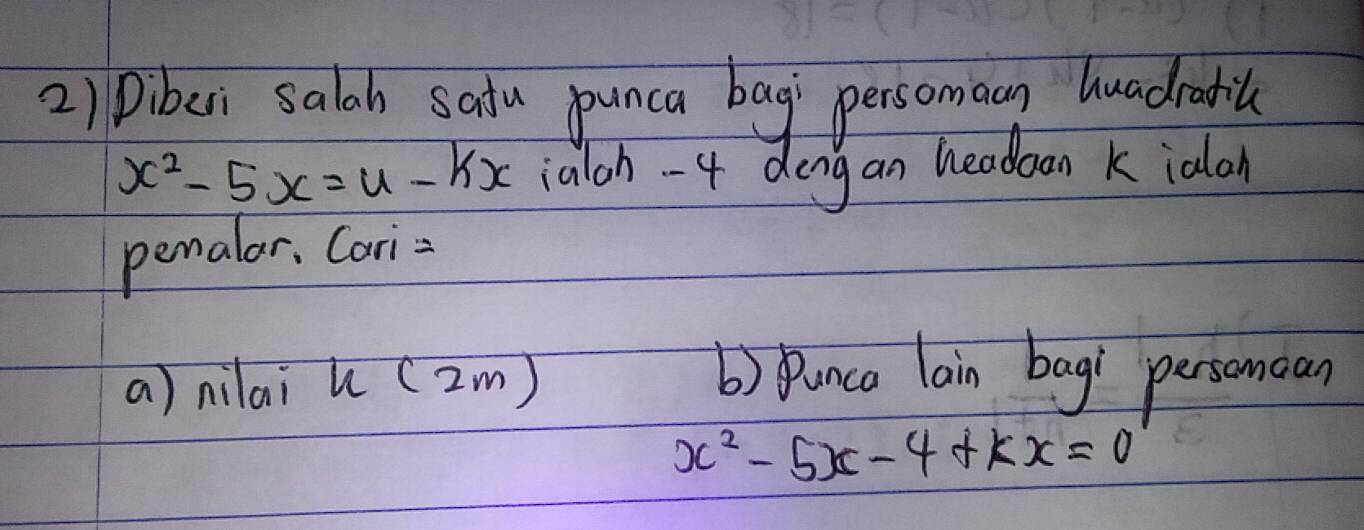 2) Diberi salah satu punca bagi persamaan kuadratik
x² - 5x = 4 - kx ialah -4 dengan keadaan k ialah
pemalar. Cari =
a) nilai k (2m) b) Punca lain bagi persamaan
x² - 5x - 4 + kx = 0